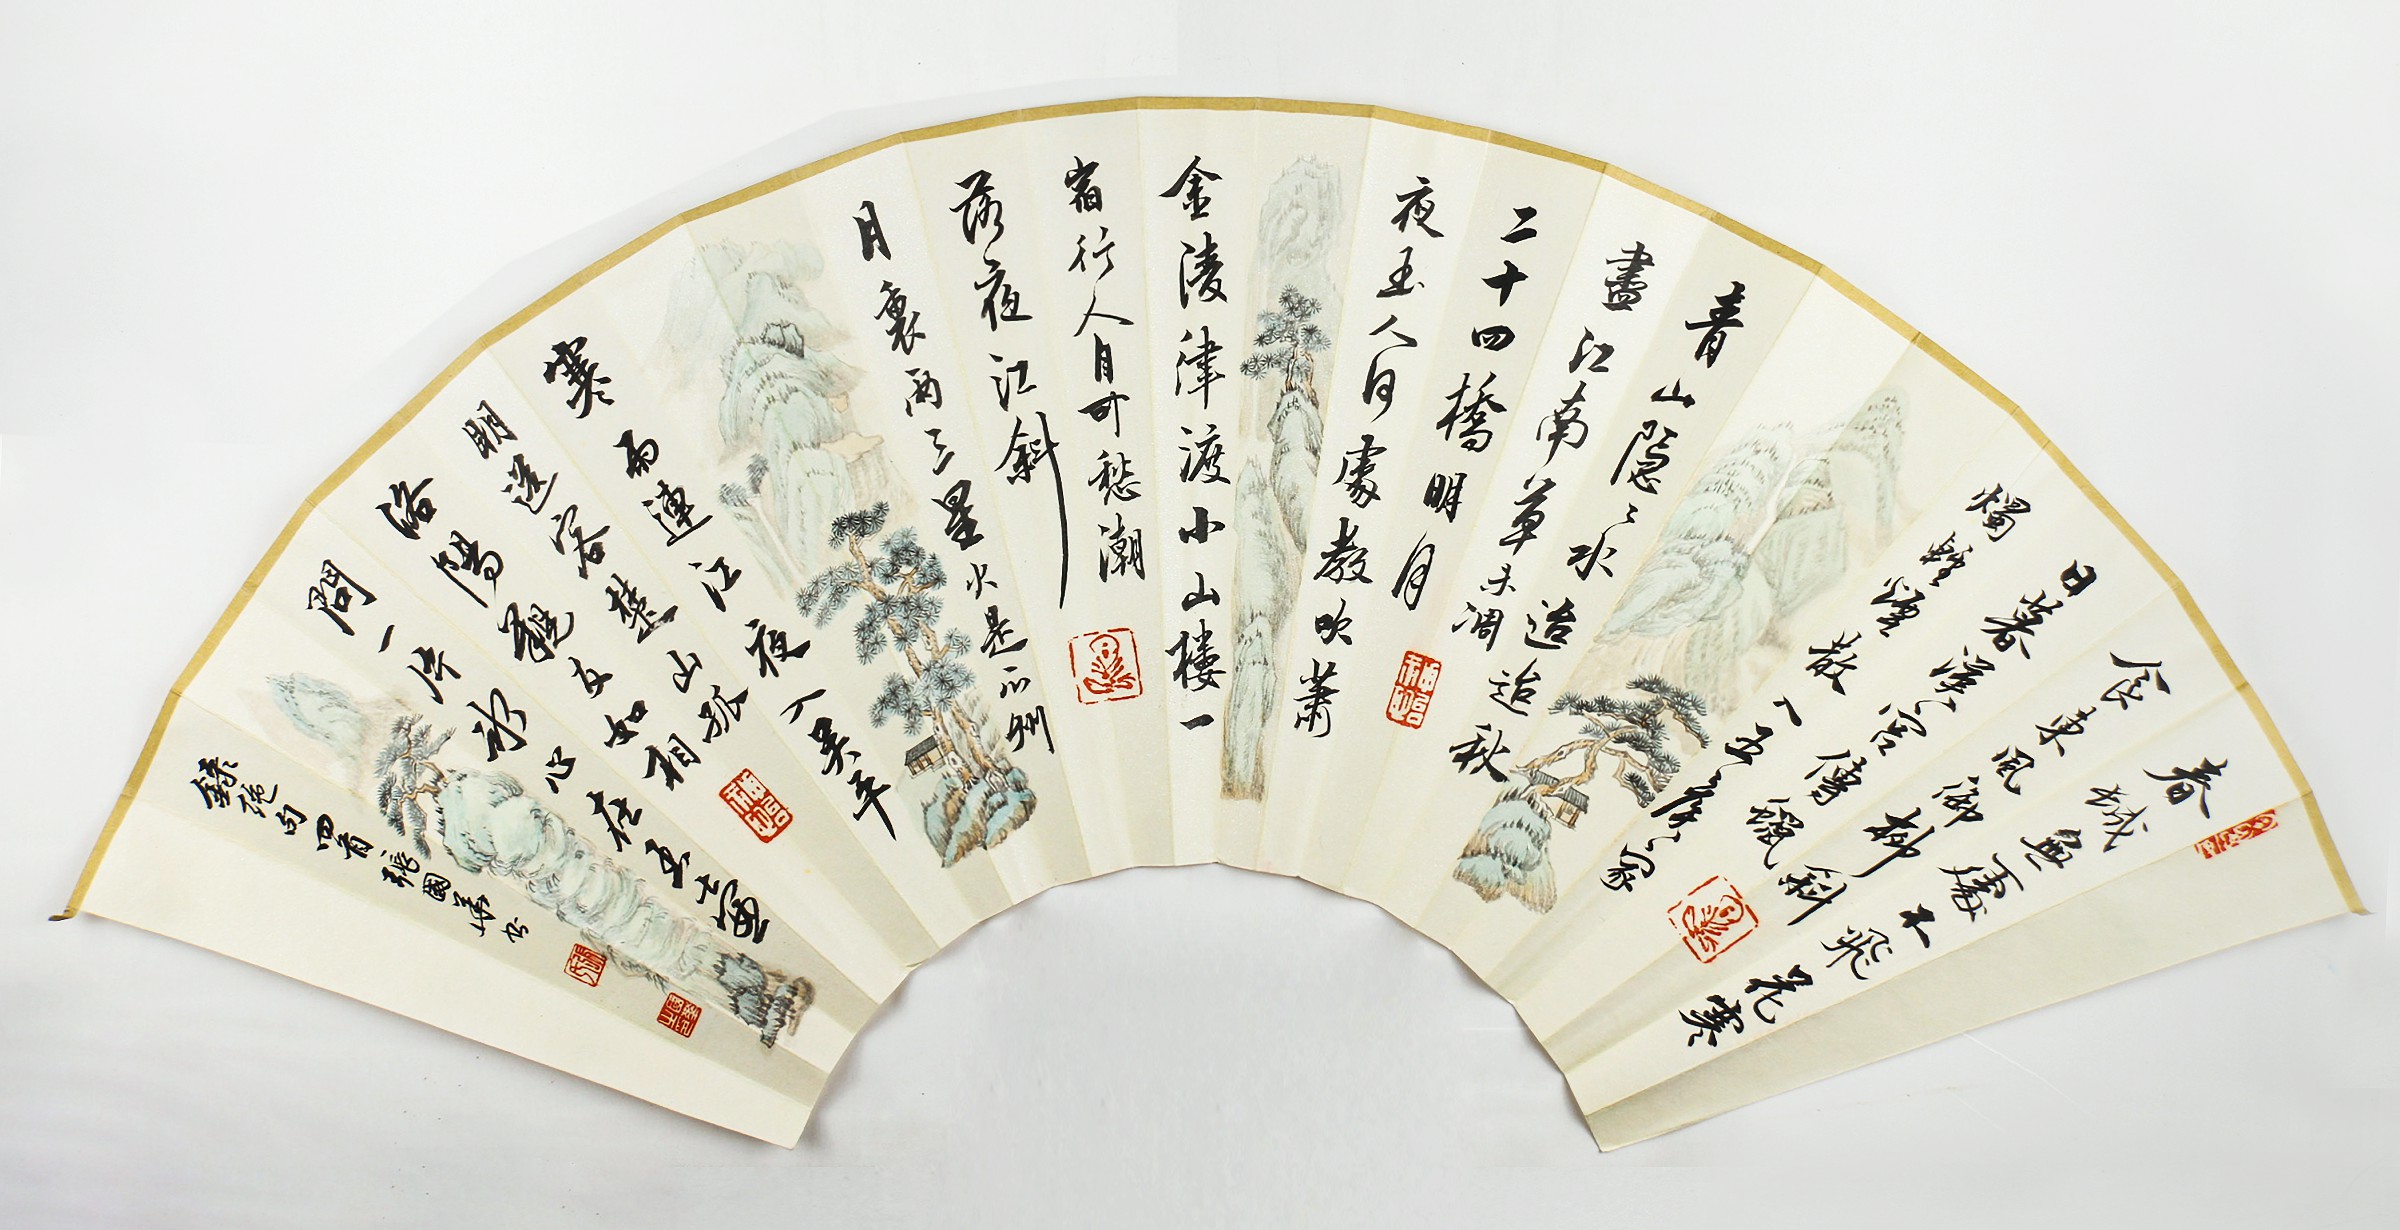 春城無處不飛花寒
食東風御柳斜
日暮漢宮傳蠟
燭輕煙散入五侯家
青山隱〻水迢迢秋
盡江南草未凋
二十四橋明月
夜玉人何處教吹簫
金陵津渡小山樓一
宿行人自可愁潮
落夜江斜
月裏兩三星火是瓜州
寒雨連江夜入吳平
明送客楚山孤
洛陽親友如相
問一片冰心在玉壺
錄絕句四首張國華書